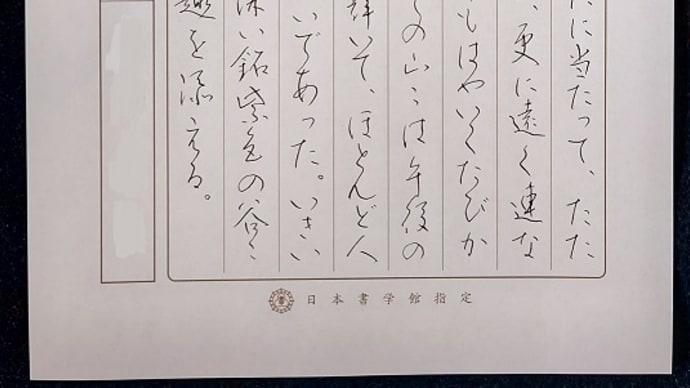 に当たって、たた
、更に遠く連な
もはやいくたびか
の山々は午後の
輝いて、ほとんど人
いであった。いきい
深い鉛紫色の谷々
趣を添える。
日本書学館指定